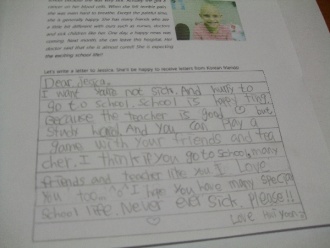 she is generally happy. She has many friends who are
a little bit different with sick such as nurses, doctors
and sick children like her. One day, a happy news was
coming. Next month, she can leave this hospital. Her
doctor said that she is almost cured! She is expecting
the exciting school life!
Let's write a letter to Jessica. She'll be happy to receive letters from Korean friends!
Dear. Jessica.
I want you're not sick. And hurry to
go to school. School is happy thing.
Because the teacher is good but,
study hard. And you can play
game with your friends and tea
cher. I think if you go to school, many
friends and teacher like you. I Love
you too. I hope you have many special
school life. Never ever sick, please!!
Love